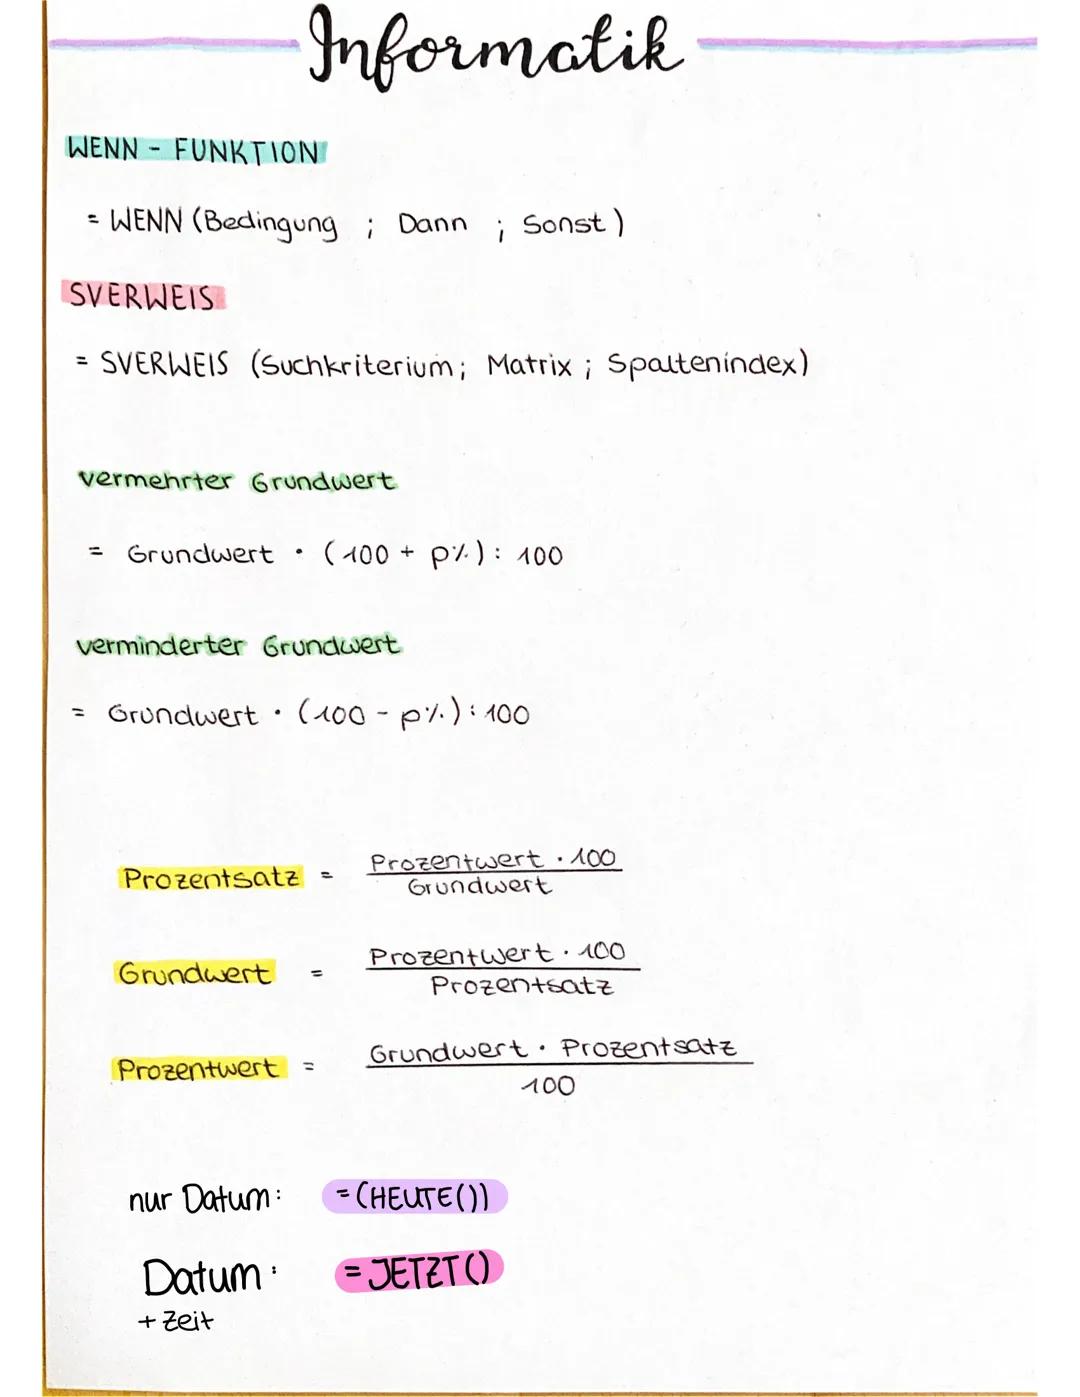 Informatik
WENN - FUNKTION
= WENN (Bedingung ; Dann ; Sonst)
SVERWEIS
= SVERWEIS (Suchkriterium; Matrix ; Spaltenindex)
vermehrter Grundwert
= Grundwert · (100 + p%) : 100
verminderter Grundwert
= Grundwert · (100 - p%) : 100
Prozentsatz = Prozentwert · 100 / Grundwert
Grundwert = Prozentwert · 100 / Prozentsatz
Prozentwert = Grundwert · Prozentsatz / 100
nur Datum: = (HEUTE())
Datum: = JETZT()
+ Zeit